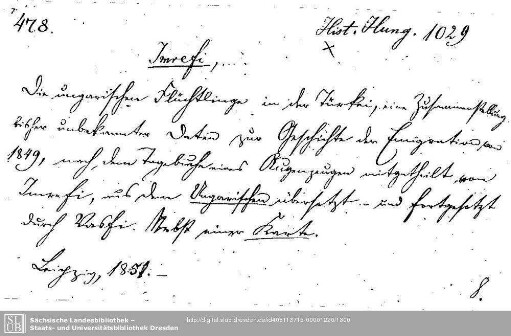 478.
Hist. Hung. 1029
Imrefi, ...
Die ungarischen Flüchtlinge in der Türkei, eine Zusammenstellung
bisher unbekannter Daten zur Geschichte der Emigration von
1849, nach dem Tagebuche eines Augenzeugen mitgetheilt von
Imrefi, aus dem Ungarischen übersetzt – und fortgesetzt
durch Vasfi. Nebst einer Karte.
Leipzig, 1851. –
8.
SLUB
Sächsische Landesbibliothek –
Staats- und Universitätsbibliothek Dresden